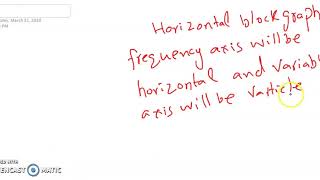 March 31, 2020
PM
Horizontal block graph
frequency axis will be
horizontal and variabl
axis will be varticle
SCREENCAST MATIC